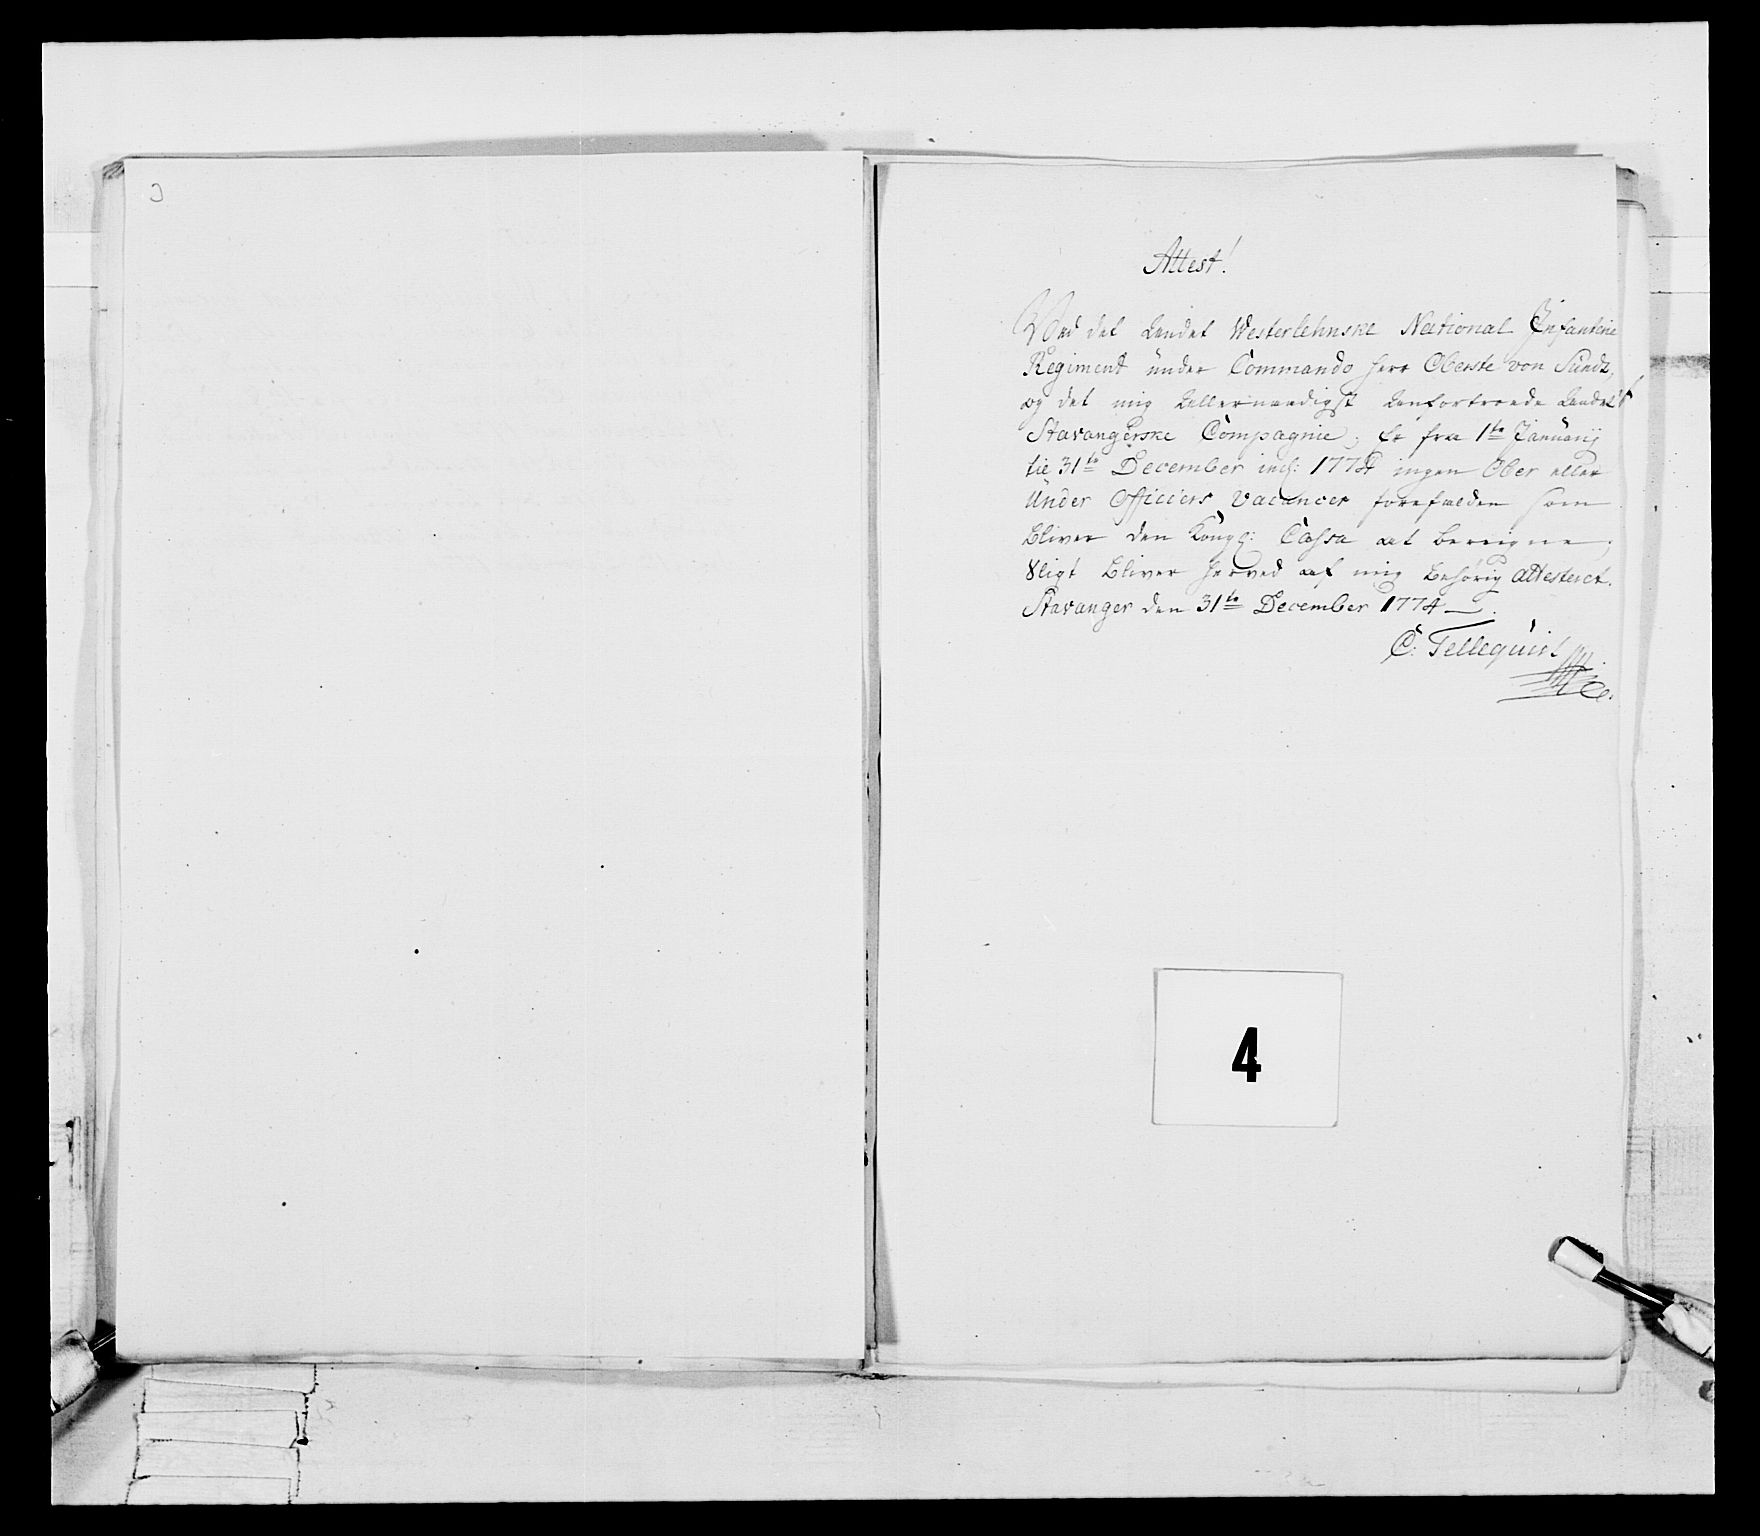 Attest!
Ved det Andet Westerlehnske National Infanterie
Regiment under Commando Herr Oberste von Sundt,
og det mig Allernaadigst Anfortroede Andet
Stavangerske Compagnie, Er fra 1te Januarij
til 31te December incl: 1774 ingen Ober eller
Under Officiers Vacancer forefalden som
bliver den Kongl: Cassa at bereigne;
Sligt bliver herved af mig behørig Attesteret.
Stavanger den 31te December 1774
C: Tellequist
4